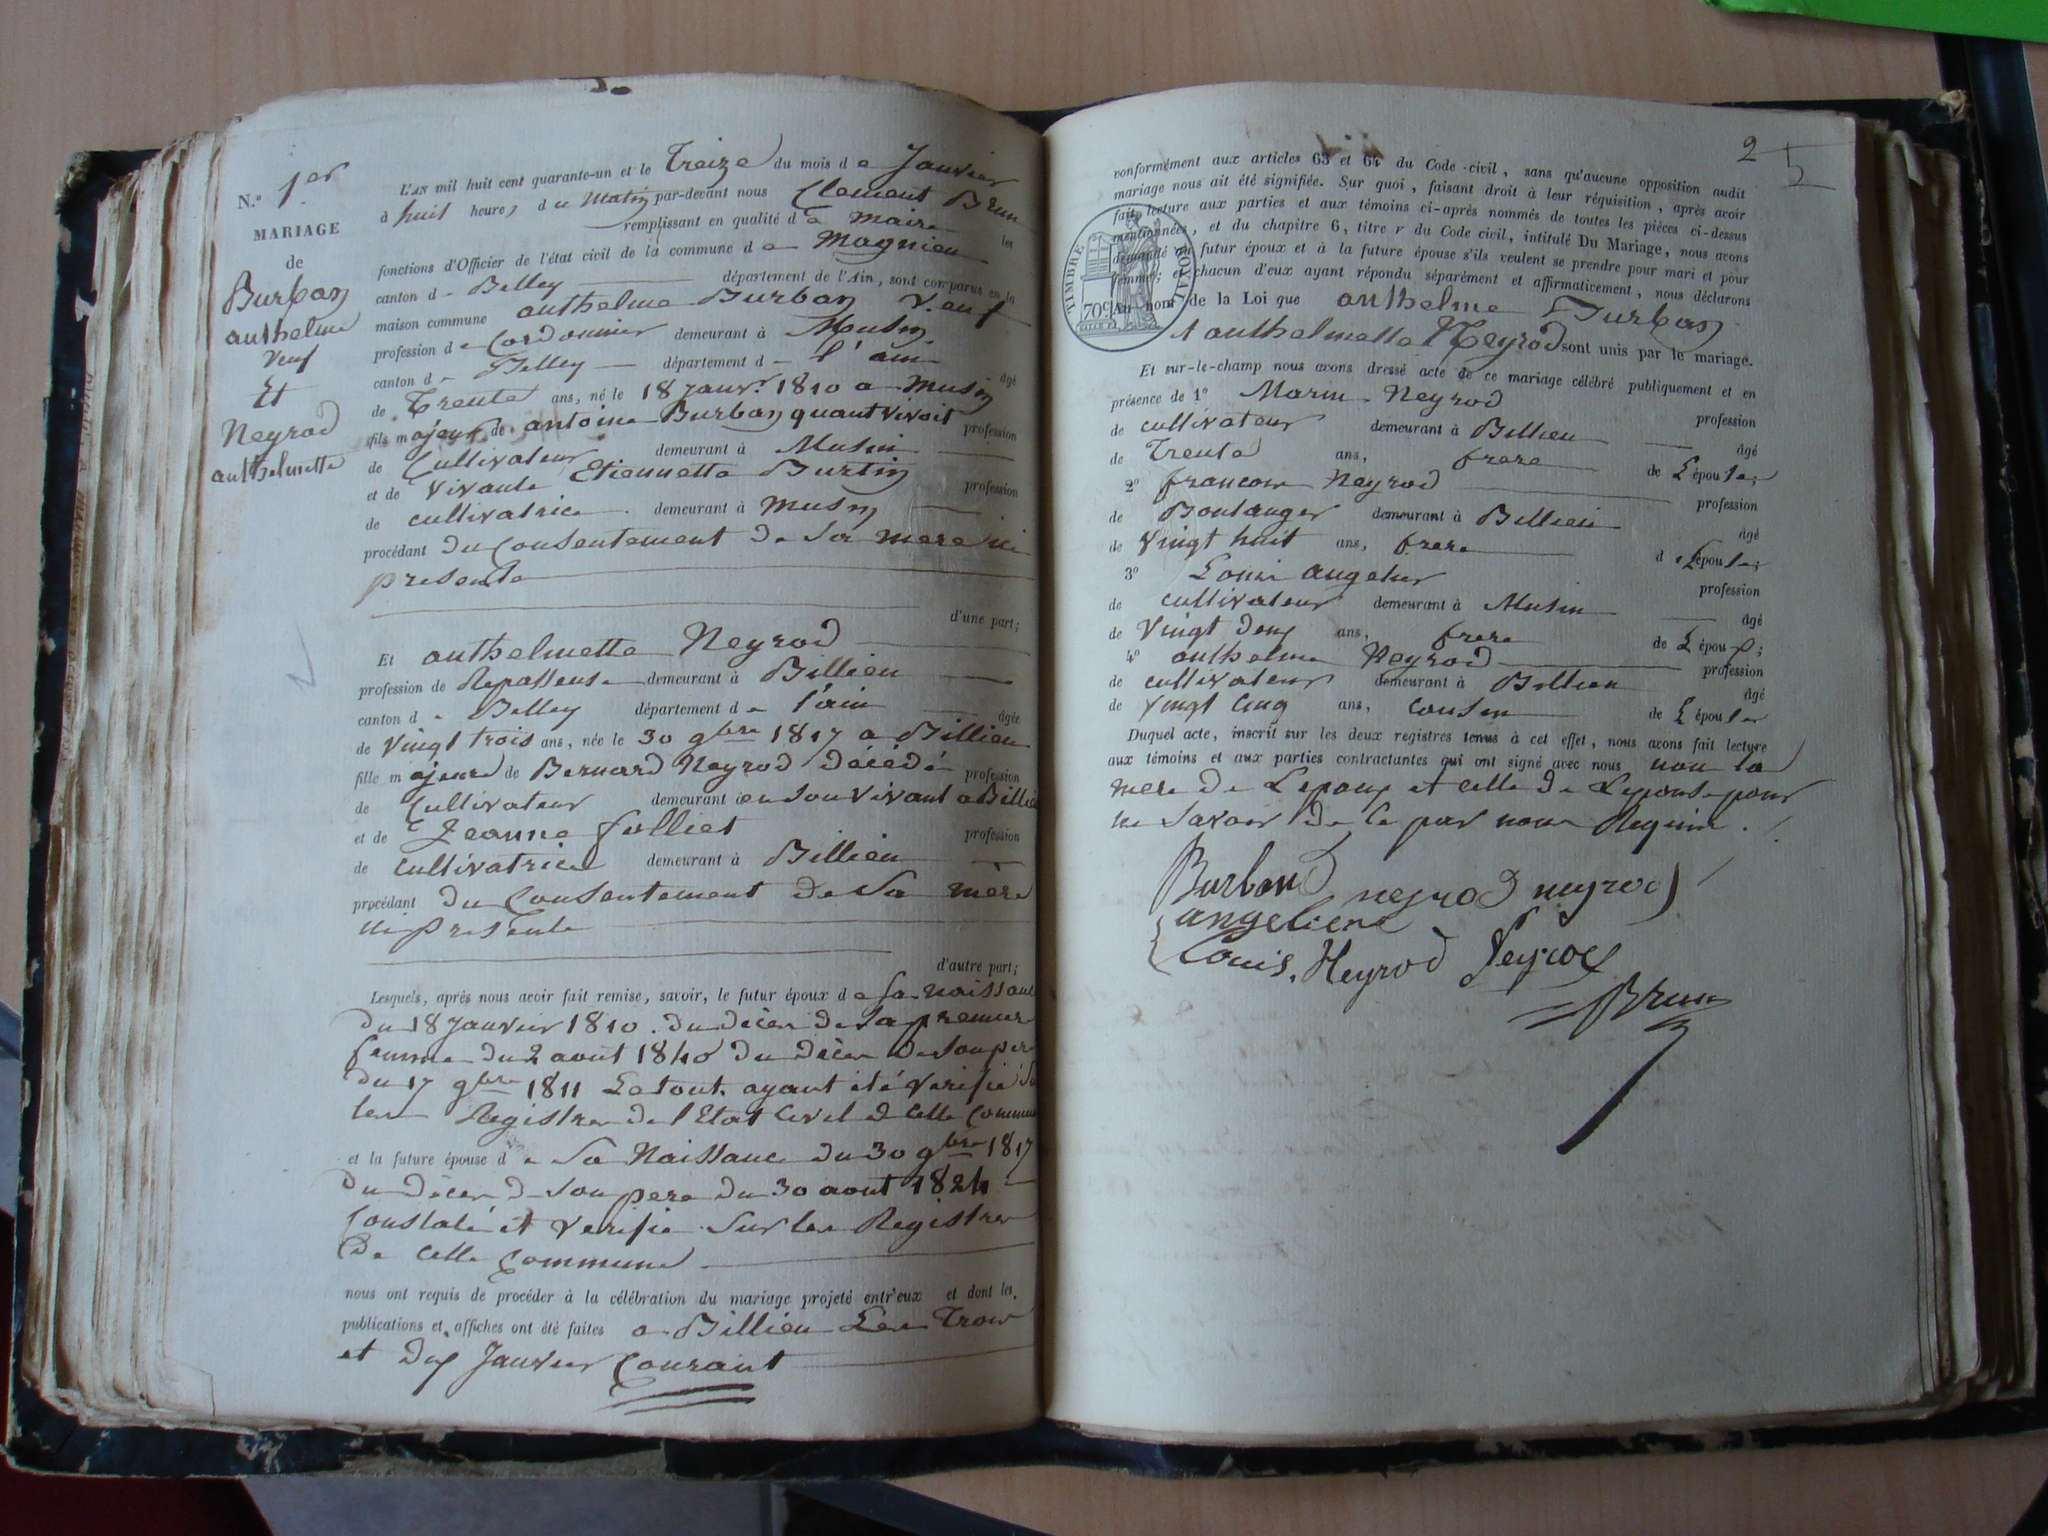 N.º 1.er
MARIAGE
de
Burban
anthelme
Veuf
Et
Neyrod
anthelmette
L'AN mil huit cent quarante-un et le Treize du mois de Janvier
à huit heures du Matin par-devant nous Clement Brun
remplissant en qualité de maire les
fonctions d'Officier de l'état civil de la commune de Magnieu
canton de Belley département de l'Ain, sont comparus en la
maison commune anthelme Burban Veuf
profession de Cordonnier demeurant à Musin
canton de Belley département de l'ain âgé
de Trente ans, né le 18 janvr. 1810 a Musin
fils majeur de antoine Burban quant vivoit profession
de Cultivateur demeurant à Musin
et de vivante Etiennette Burtin profession
de cultivatrice demeurant à Musin
procédant du Consentement de Sa mere ici
presente
d'une part;
Et anthelmette Neyrod
profession de Repasseuse demeurant à Billieu
canton de Belley département de l'ain âgée
de vingt trois ans, née le 30 9bre 1817 a Billieu
fille majeure de Bernard Neyrod décédé profession
de Cultivateur demeurant en son vivant a Billieu
et de Jeanne folliet profession
de cultivatrice demeurant à Billieu
procédant du Consentement de Sa mère
ici presente
d'autre part;
Lesquels, après nous avoir fait remise, savoir, le futur époux de sa naissance
du 18 janvier 1810. du décès de Sa premiere
femme du 2 août 1840 du décès de Son pere
du 17 9bre 1811 Le tout ayant été verifié Sur
les Registres de l'Etat Civil de cette Commune
et la future épouse de Sa Naissance du 30 9bre 1817
du décès de Son pere du 30 aout 1824
Constaté et verifié Sur les Registres
de cette Commune
nous ont requis de procéder à la célébration du mariage projeté entr'eux et dont les
publications et affiches ont été faites a Billieu Les Trois
et dix Janvier Courant
2
5
conformément aux articles 63 et 64 du Code civil, sans qu'aucune opposition audit
mariage nous ait été signifiée. Sur quoi, faisant droit à leur réquisition, après avoir
fait lecture aux parties et aux témoins ci-après nommés de toutes les pièces ci-dessus
mentionnées, et du chapitre 6, titre v du Code civil, intitulé Du Mariage, nous avons
demandé au futur époux et à la future épouse s'ils veulent se prendre pour mari et pour
femme; et chacun d'eux ayant répondu séparément et affirmativement, nous déclarons
Au nom de la Loi que anthelme Burban
TIMBRE ROYAL
70c
et anthelmette Neyrod sont unis par le mariage.
Et sur-le-champ nous avons dressé acte de ce mariage célébré publiquement et en
présence de 1º Marin Neyrod profession
de cultivateur demeurant à Billieu âgé
de Trente ans, frere de L'épouse;
2º francois Neyrod profession
de Boulanger demeurant à Billieu âgé
de vingt huit ans, frere de L'épouse;
3º Louis angelier profession
de cultivateur demeurant à Musin âgé
de vingt deux ans, frere de L'époux;
4º anthelme Neyrod profession
de cultivateur demeurant à Billieu âgé
de vingt cinq ans, cousin de L'épouse
Duquel acte, inscrit sur les deux registres tenus à cet effet, nous avons fait lecture
aux témoins et aux parties contractantes qui ont signé avec nous non la
mere de L'epoux et celle de L'epouse pour
ne Savoir de ce par nous Requis.
Burband neyrod neyrod
angeliere
Louis. Neyrod Neyrod
Brun